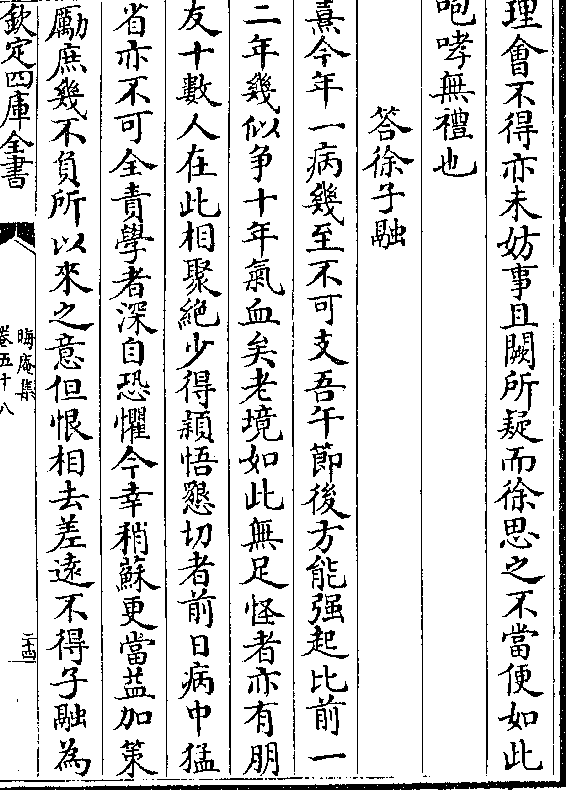 理會不得亦未妨事且闕所疑而徐思之不當便如此
咆哮無禮也
答徐子融
熹今年一病幾至不可支吾午節後方能强起比前一
二年幾似爭十年氣血矣老境如此無足怪者亦有朋
友十數人在此相聚絶少得穎悟懇切者前日病中猛
省亦不可全責學者深自恐懼今幸稍蘇更當益加策
勵庶幾不負所以來之意但恨相去差遠不得子融為
欽定四庫全書
晦庵集
卷五十八
二十四